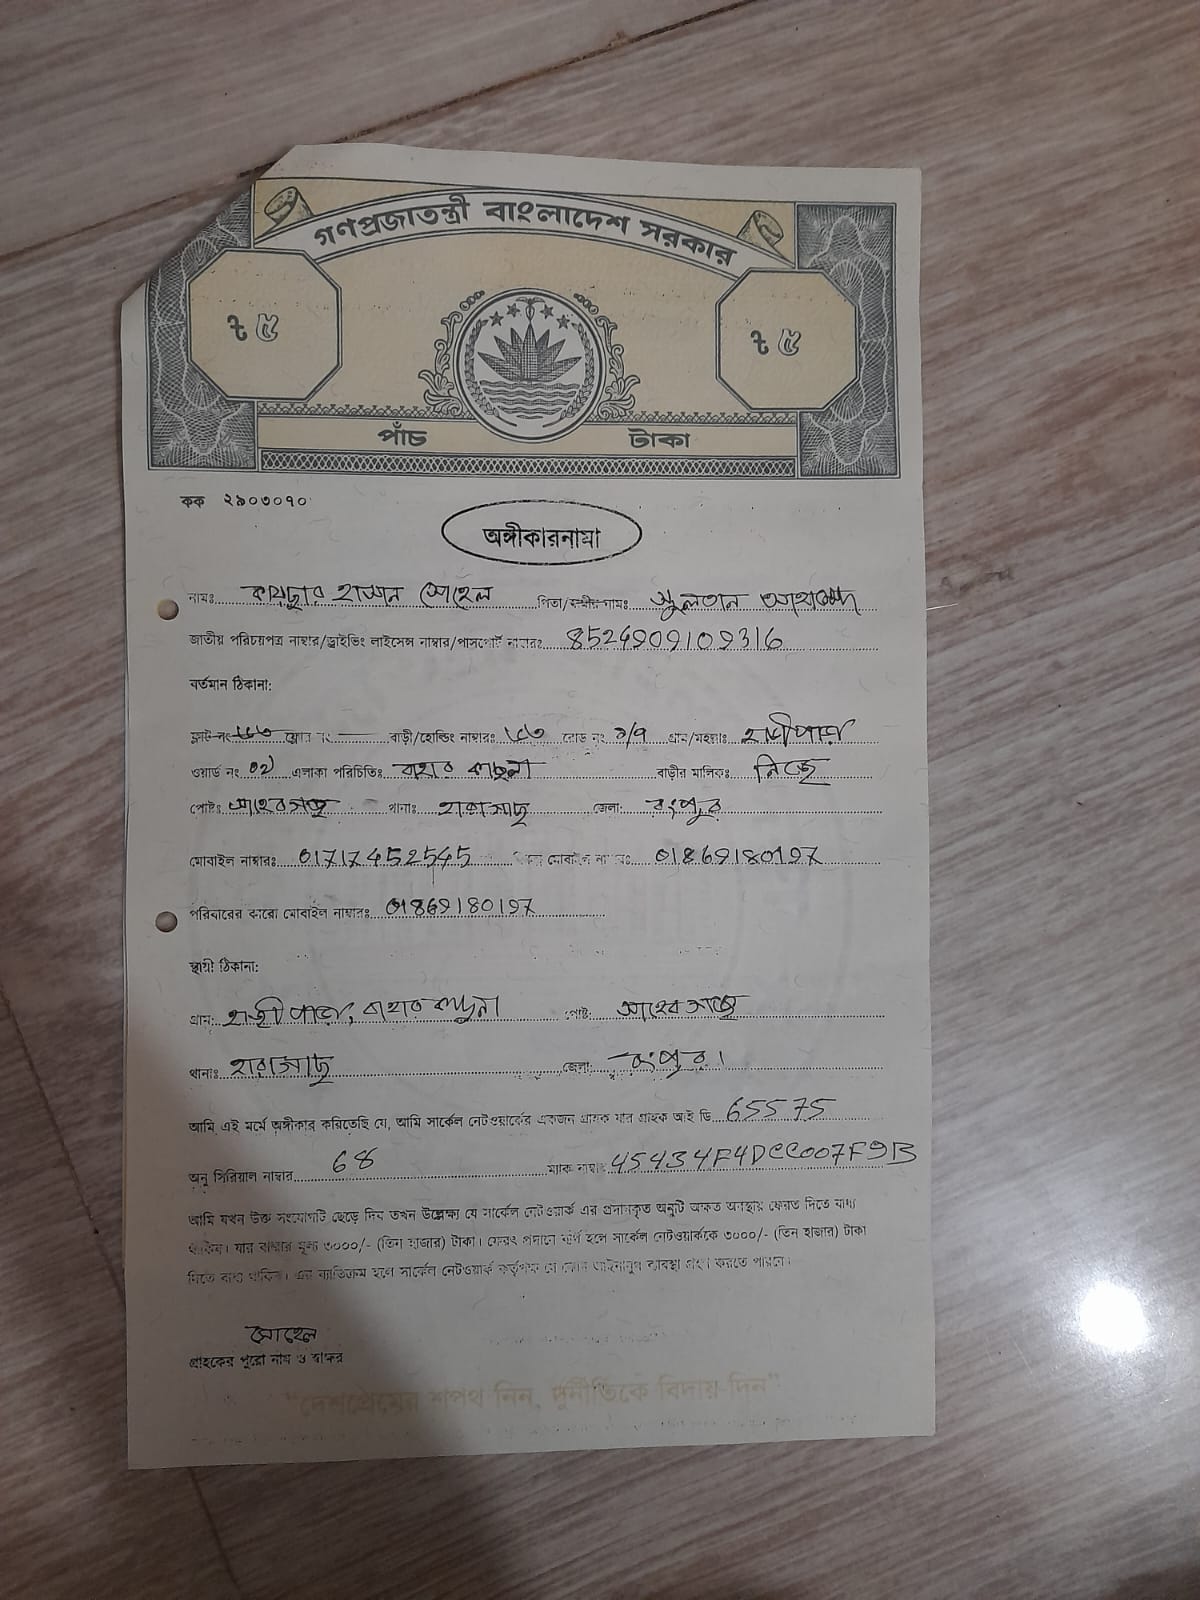 গণপ্রজাতন্ত্রী বাংলাদেশ সরকার
৳ ৫ ৳ ৫
পাঁচ টাকা
কক ২৯০৩০৭০
অঙ্গীকারনামা
নামঃ কায়ছার হাসান সোহেল পিতা/স্বামীর নামঃ সুলতান আহাম্মদ
জাতীয় পরিচয়পত্র নাম্বার/ড্রাইভিং লাইসেন্স নাম্বার/পাসপোর্ট নাম্বারঃ 8524909109316
বর্তমান ঠিকানা:
ফ্ল্যাট নং ফ্লোর নং বাড়ী/হোল্ডিং নাম্বারঃ রোড নং ১/৭ গ্রাম/মহল্লাঃ হাজীপাড়া
ওয়ার্ড নং 02 এলাকা পরিচিতিঃ বাহার কাছনা বাড়ীর মালিকঃ নিজে
পোষ্টঃ সাহেবগঞ্জ থানাঃ হারাগাছ জেলা: রংপুর
মোবাইল নাম্বারঃ 01717452545 মোবাইল নাম্বারঃ 01869180197
পরিবারের কারো মোবাইল নাম্বারঃ 01869180197
স্থায়ী ঠিকানা:
গ্রাম: হাজীপাড়া, বাহার কাছনা পোষ্ট: সাহেবগঞ্জ
থানাঃ হারাগাছ জেলা: রংপুর।
আমি এই মর্মে অঙ্গীকার করিতেছি যে, আমি সার্কেল নেটওয়ার্কের একজন গ্রাহক যার গ্রাহক আই ডি 65575
অনু সিরিয়াল নাম্বার 68 ম্যাক নাম্বারঃ 45434F4DCC007F9B
আমি যখন উক্ত সংযোগটি ছেড়ে দিব তখন উল্লেক্ষ্য যে সার্কেল নেটওয়ার্ক এর প্রদানকৃত অনুটি অক্ষত অবস্থায় ফেরত দিতে বাধ্য
থাকিব। যার বাজার মূল্য ৩০০০/- (তিন হাজার) টাকা। ফেরৎ প্রদানে ব্যর্থ হলে সার্কেল নেটওয়ার্ককে ৩০০০/- (তিন হাজার) টাকা
দিতে বাধ্য থাকিব। এর ব্যতিক্রম হলে সার্কেল নেটওয়ার্ক কর্তৃপক্ষ যে কোন আইনানুগ ব্যবস্থা গ্রহণ করতে পারবে।
সোহেল
গ্রাহকের পুরো নাম ও স্বাক্ষর
“দেশপ্রেমের শপথ নিন, দুর্নীতিকে বিদায় দিন”